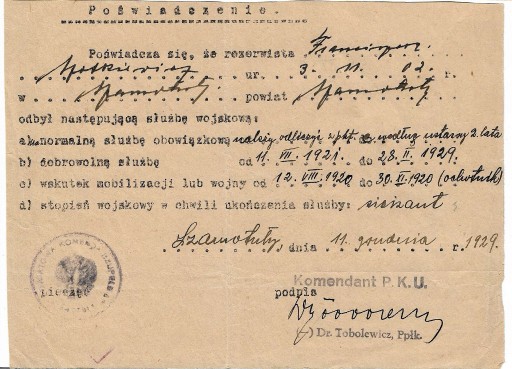 Poświadczenie.
Poświadcza się, że rezerwista Franciszek
ur. 3. 11. 02. r.
w Szamotuły powiat Szamotuły
odbył następującą służbę wojskową:
a) normalną służbę obowiązkową należy odliczyć z pkt. według ustawy 2 lata
b) dobrowolną służbę od 11. VII. 1921 do 28. II. 1929.
c) wskutek mobilizacji lub wojny od 12. VIII. 1920 do 30. XI. 1920 (ochotnik)
d) stopień wojskowy w chwili ukończenia służby:
Szamotuły, dnia 11. grudnia r. 1929.
Komendant P.K.U.
pieczęć
podpis
(-) Dr. Tobolewicz, Ppłk.